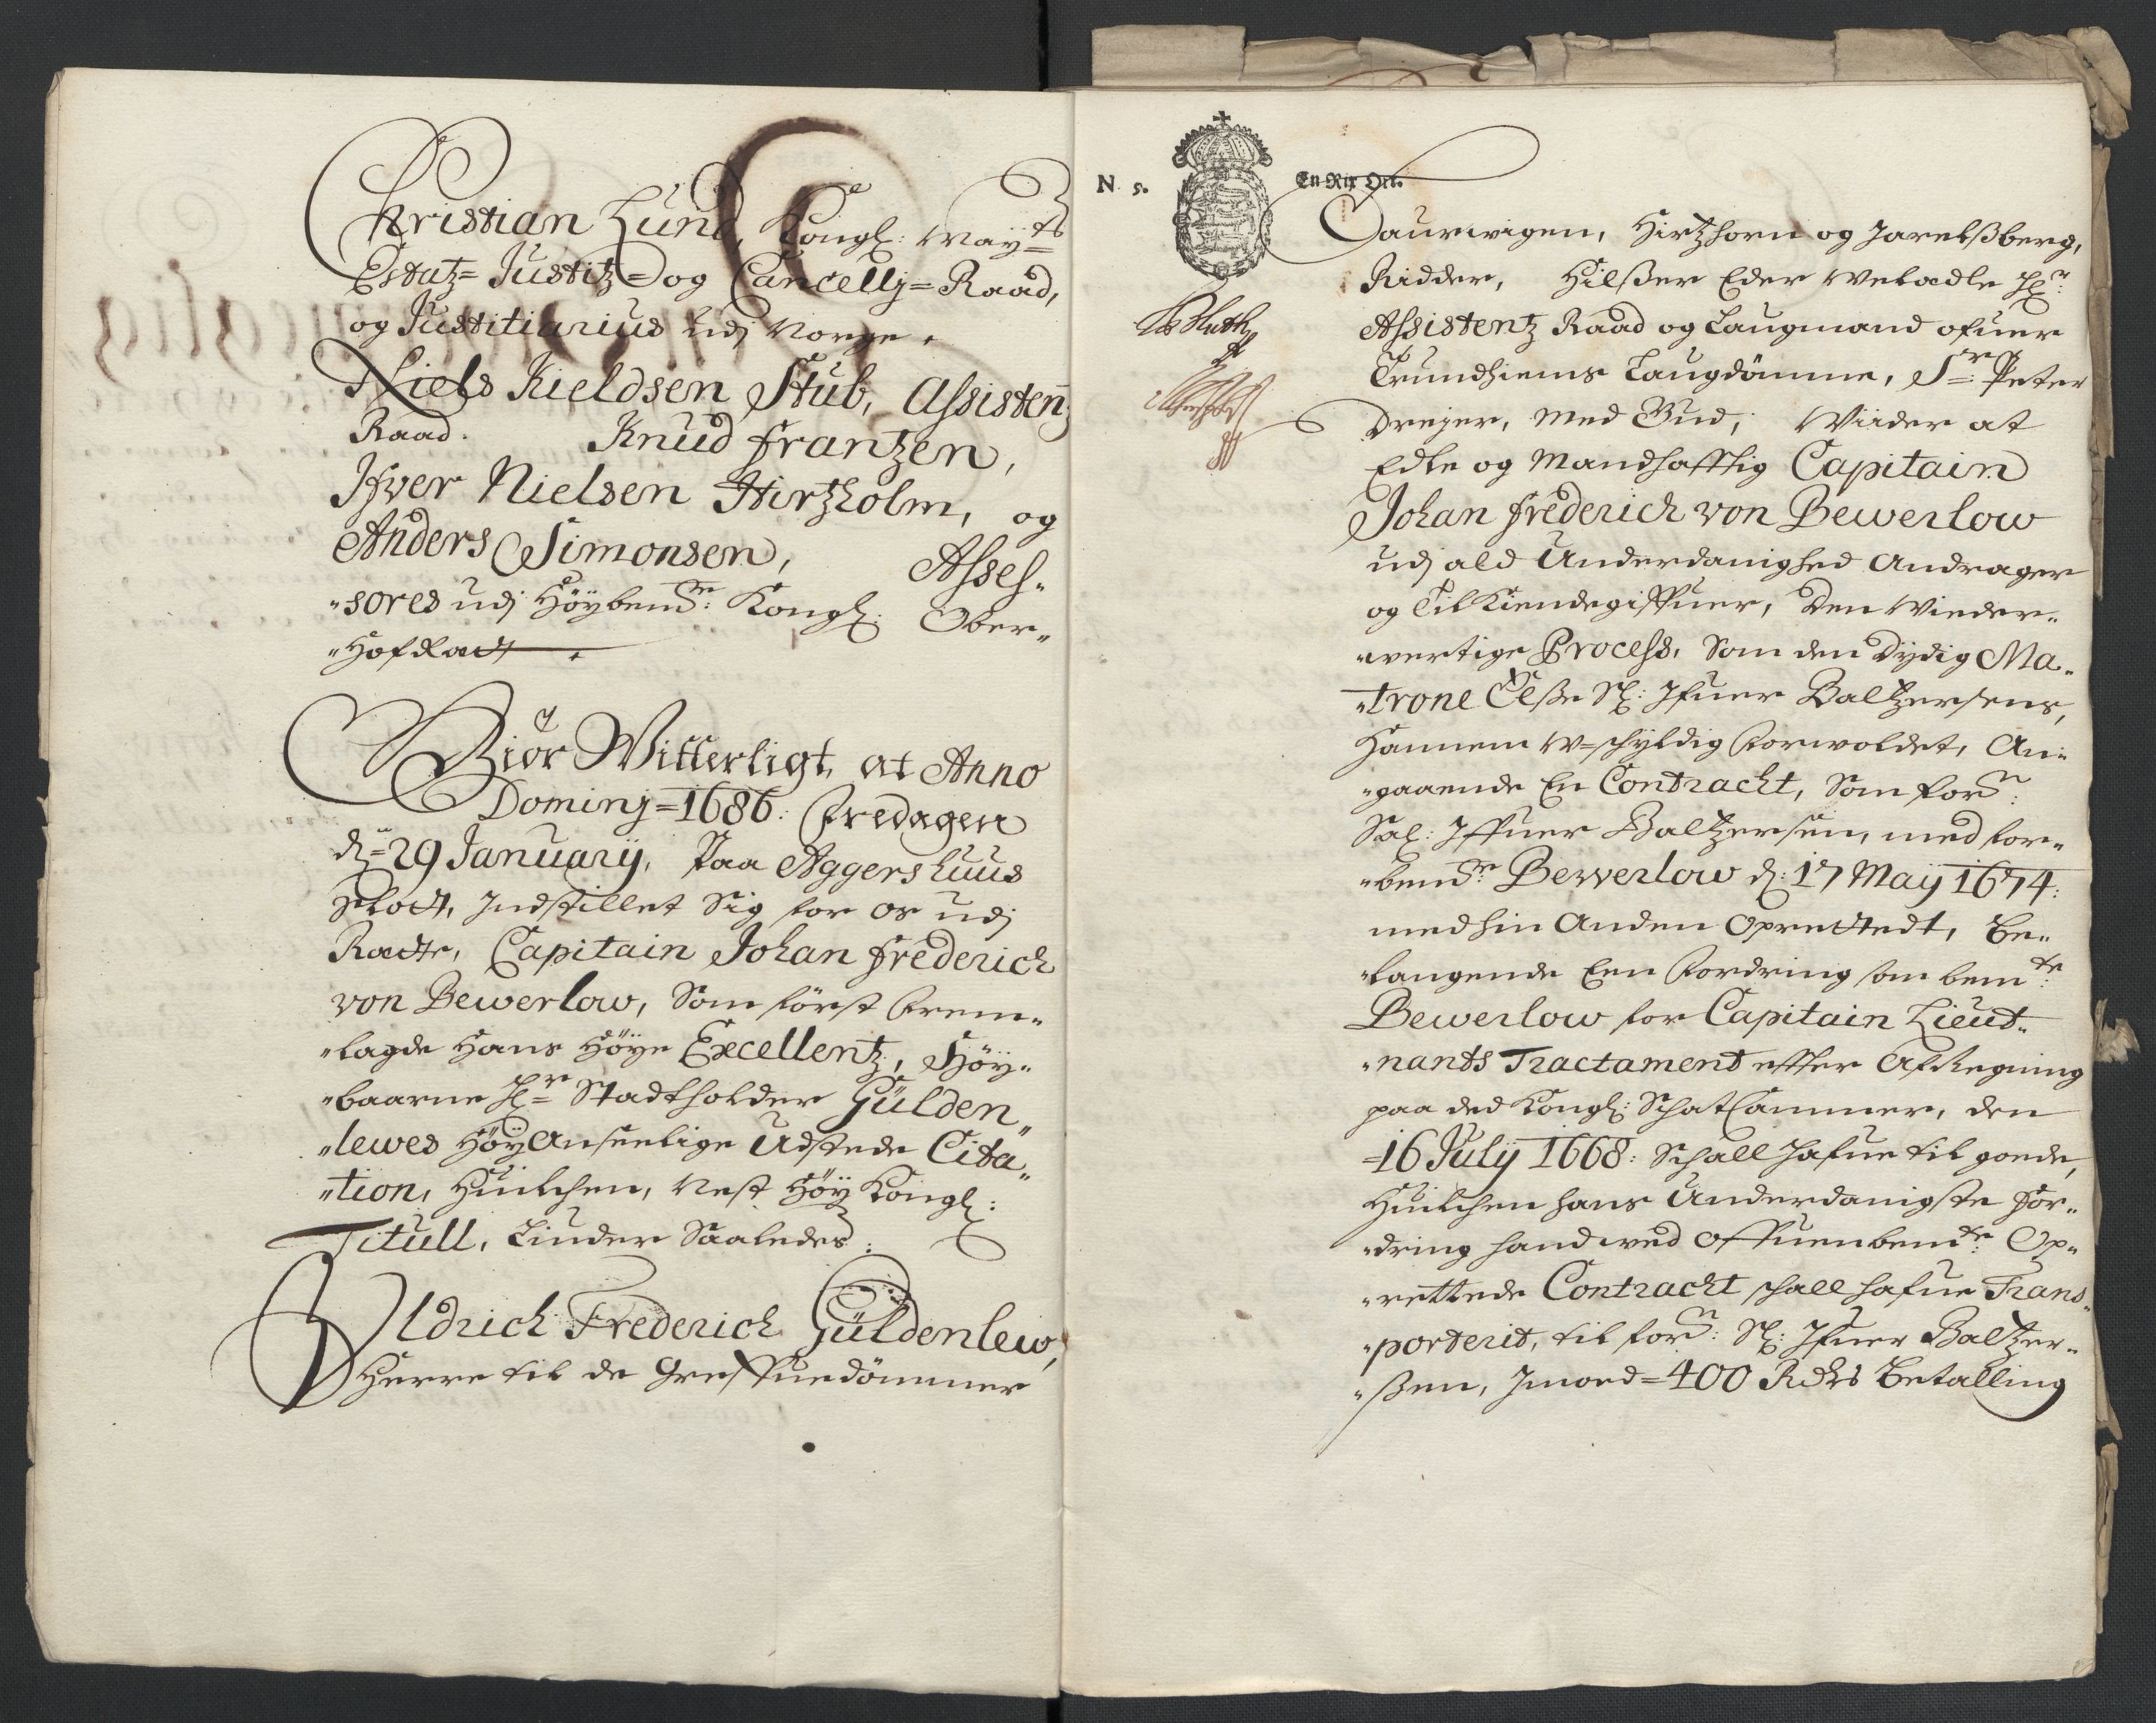 Christian Lund, Kongl: Maÿts
Estatz= Justitz= og Cancellj= Raad,
og Justitiarius udj Norge.
Niels Kieldsen Stub, Assistentz
Raad. Knud Frantzen,
Ifver Nielsen Hirtzholm, og
Anders Simonsen, Asses„
„sores udj Höÿbemte: Kongl: Ober„
„Hof Rætt.
Giör Witterligt, at Anno
Dominj=1686: Fredagen
d= 29 Januarÿ, Paa Aggershuus
Slott, Indstillet Sig for os udj
Rætte, Capitain Johan Frederich
von Bewerlow, Som först Frem„
„lagde Hans Höÿe Excellentz, Höÿ„
„baarne Hr= Stadtholder Gülden„
„lewes HöÿAnseelige Udstede Cita„
„tion, Huilchen, Nest Höÿ Kongl:
Titull, Liuder Saaledes:
Uldrich Frederich Güldenlew,
Herre til de Greffuedömmer
N 5. En Rix Ort.
Laurwigen, Hirtzhorn og Jarelsberg,
Ridder, Hilsser Eder Welædle Hr:
Assistentz Raad og Laugmand ofuer
Trundhiems Laugdömme, Sr: Peter
Dreyer, Med Gud; Wiider at
Edle og Mandhafftig Capitain
Johan Frederich von Bewerlow
udj ald Underdanighed Andrager
og Tilkiendegiffuer, den Wieder„
„wertige Process, Som den Dydig Ma„
„trone Else Sl: Ifuer Baltzersens,
Hannem W=schyldig Forwoldet, An„
„gaaende En Contracht, Som forn:
Sal: Iffuer Baltzersen, med for„
„bemte: Bewerlow d: 17 Maÿ 1674:
med hin Anden Oprettedt, Be„
„langende Een Fordring som bemte:
Bewerlow for Capitain Lieut„
„nants Tractament effter Afregning
paa ded Kongl: SchatCammer, den
=16 Julÿ 1668: Schall hafue til goede,
Huilchen hans Underdanigste For„
„dring hand wed Offuenbemte: Op„
„rettede Contracht schall hafue Trans„
„porterit, til forn: Sl: Ifuer Baltzer„
„ssen, Imoed=400 Rdrs Betalling